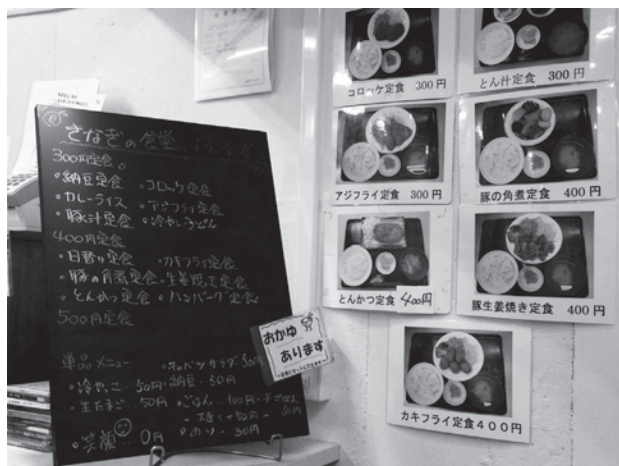 さなぎの食堂
300円定食
・納豆定食 ・コロッケ定食
・カレーライス ・アジフライ定食
・豚汁定食 ・冷やしうどん
400円定食
・日替り定食 ・カキフライ定食
・豚の角煮定食 ・生姜焼き定食
・とんかつ定食 ・ハンバーグ定食
500円定食
単品メニュー ・キャベツサラダ
・冷やっこ…50円 ・納豆…50円
・生たまご…50円 ・ごはん…100円
・笑顔…0円 ・のり…30円
おかゆ
あります
コロッケ定食 300円
とん汁定食 300円
アジフライ定食 300円
豚の角煮定食 400円
とんかつ定食 400円
豚生姜焼き定食 400円
カキフライ定食400円